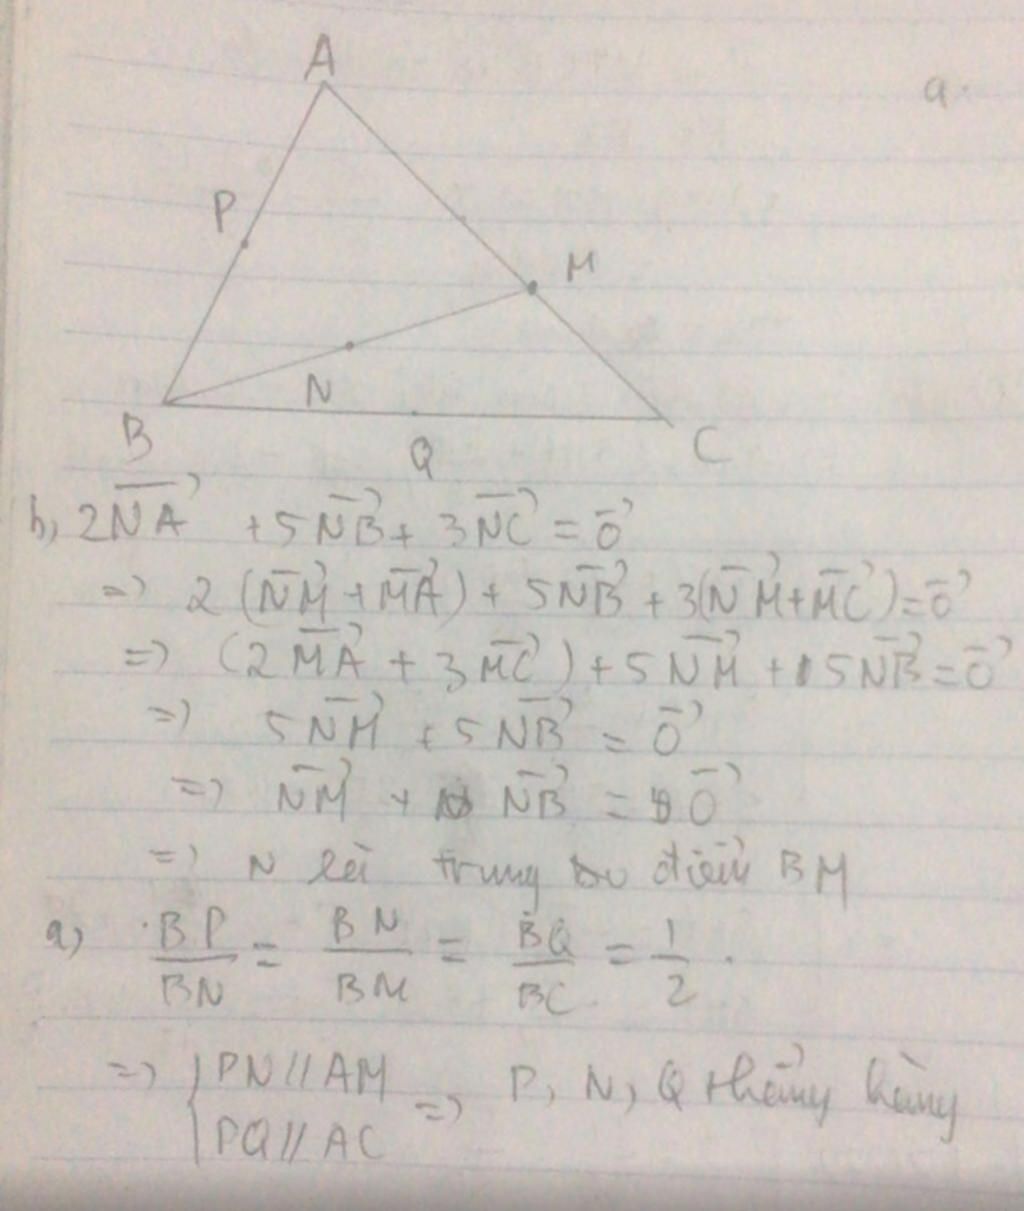 A
a.
P
M
N
B
Q
C
b, 2\overrightarrow{NA} + 5\overrightarrow{NB} + 3\overrightarrow{NC} = \vec{0}
=> 2(\overrightarrow{NM} + \overrightarrow{MA}) + 5\overrightarrow{NB} + 3(\overrightarrow{NM} + \overrightarrow{MC}) = \vec{0}
=> (2\overrightarrow{MA} + 3\overrightarrow{MC}) + 5\overrightarrow{NM} + 5\overrightarrow{NB} = \vec{0}
=> 5\overrightarrow{NM} + 5\overrightarrow{NB} = \vec{0}
=> \overrightarrow{NM} + \overrightarrow{NB} = \vec{0}
=> N là trung điểm BM
a, \frac{BP}{BN} = \frac{BN}{BM} = \frac{BQ}{BC} = \frac{1}{2}.
=> { PN // AM
PQ // AC => P, N, Q thẳng hàng